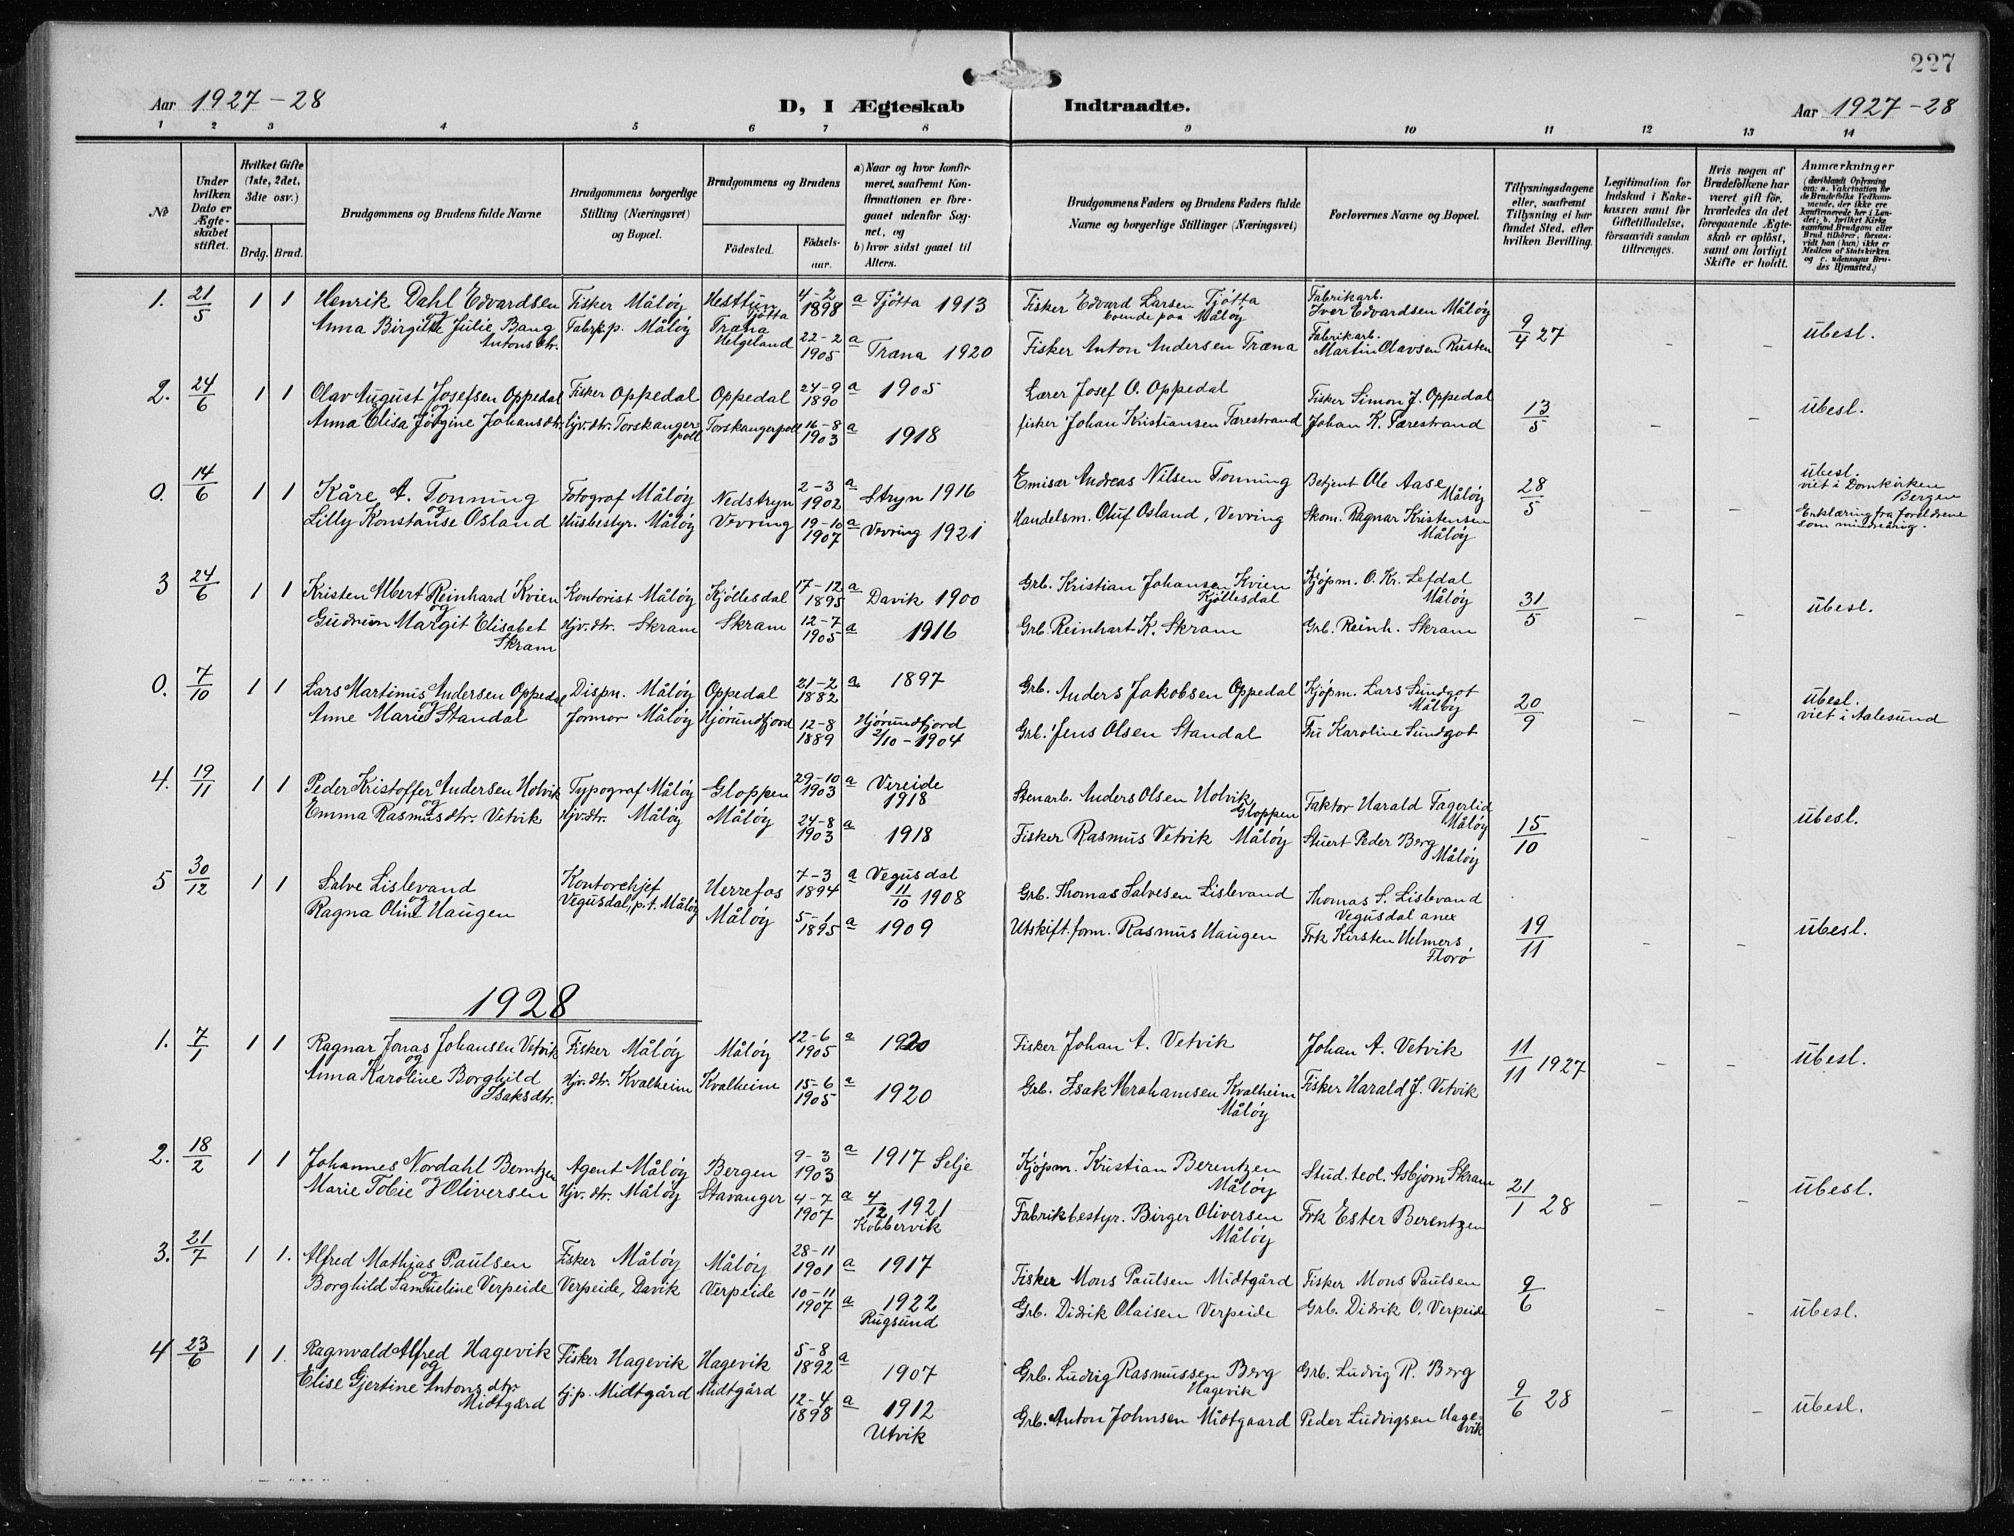 227
Aar 1927-28 D, I Ægteskab Indtraadte. Aar 1927-28
1 2 3 4 5 6 7 8 9 10 11 12 13 14
No
Under hvilken Dato er Ægteskabet stiftet.
Hvilket Gifte (1ste, 2det, 3dte osv.)
Brdg. Brud.
Brudgommens og Brudens fulde Navne
Brudgommens borgerlige Stilling (Næringsvei) og Bopæl.
Brudgommens og Brudens
Födested. Födselsaar.
a) Naar og hvor konfirmeret, saafremt Konfirmationen er foregaaet udenfor Sognet, og
b) hvor sidst gaaet til Alters.
Brudgommens Faders og Brudens Faders fulde Navne og borgerlige Stillinger (Næringsvei)
Forlovernes Navne og Bopæl.
Tillysningsdagene eller, saafremt Tillysning ei har fundet Sted, efter hvilken Bevilling.
Legitimation for Indskud i Enkekassen samt for Giftetilladelse, forsaavidt saadan tiltrænges.
Hvis nogen af Brudefolkene har været gift för, hvorledes da det foregaaende Ægteskab er oplöst, samt om lovligt Skifte er holdt.
Anmærkninger
(deriblandt Oplysning om: a. Vakcination for de Brudefolks Vedkommende, der ikke ere konfirmerede her i Landet; b. hvilket Kirkesamfund Brudgom eller Brud tilhörer, forsaavidt han (hun) ikke er Medlem af Statskirken og c. udensogns Brudes Hjemsted.)
1. 21/5 1 1 Henrik Dahl Edvardsen Fisker Måløy Hesttun Tjøtta 4-2 1898 a Tjøtta 1913 Fisker Edvard Larsen Tjøtta boende paa Måløy Fabrikarb. Iver Edvardsen Måløy 9/4 27 - - ubesl.
og
Anna Birgitte Julie Bang Antonsdtr. Fabrikp. Måløy Træna Helgeland 22-2 1905 a Træna 1920 Fisker Anton Andersen Træna Fabrikarb. Martin Olavsen Rusten
2. 24/6 1 1 Olav August Josefsen Oppedal Fisker Oppedal Oppedal 24-9 1890 a 1905 Lærer Josef O. Oppedal Fisker Simon J. Oppedal 13/5 - - ubesl.
og
Anna Elisa Jørgine Johansdtr. Hjv.dtr. Torskangerpoll Torskangerpoll 16-8 1903 a 1918 fisker Johan Kristiansen Færestrand Johan K. Færestrand
0. 14/6 1 1 Kåre A. Tonning Fotograf Måløy Nedstryn 2-3 1902 a Stryn 1916 Emisær Andreas Nilsen Tonning Betjent Ole Aase Måløy 28/5 - - ubesl. viet i Domkirken Bergen
og
Lilly Konstanse Osland Husbestyr. Måløy Vevring 19-10 1907 a Vevring 1921 Handelsm. Oluf Osland, Vevring Skom. Ragnar Kristensen Måløy Erklæring fra foreldrene som mindreårig.
3 24/6 1 1 Kristen Albert Reinhard Kvien Kontorist Måløy Kjøllesdal 17-12 1895 a Davik 1900 Grb. Kristian Johansen Kvien Kjøllesdal Kjøpm. O. Kr. Lefdal Måløy 31/5 - - ubesl.
og
Gudrun Margit Elisabet Skram Hjv.dtr. Skram Skram 12-7 1905 a 1916 Grb. Reinhart K. Skram Grb. Reinh. Skram
0. 7/10 1 1 Lars Martinus Andersen Oppedal Dispn. Måløy Oppedal 21-2 1882 a 1897 Grb. Anders Jakobsen Oppedal Kjøpm. Lars Sundgot Måløy 20/9 - - ubesl. viet i Aalesund
og
Anne Marie Standal Jormor Måløy Hjørundfjord 12-8 1889 Hjørundfjord 2/10-1904 Grb. Jens Olsen Standal Fru Karoline Sundgot
4. 19/11 1 1 Peder Kristoffer Andersen Holvik Typograf Måløy Gloppen 29-10 1903 a Vereide 1918 Stenarb. Anders Olsen Holvik Gloppen Faktor Harald Fagerlid Måløy 15/10 - - ubesl.
og
Emma Rasmusdtr. Vetvik Hjv.dtr. Måløy Måløy 24-8 1903 a 1918 Fisker Rasmus Vetvik Måløy Stuert Peder Berg Måløy
5 30/12 1 1 Salve Lislevand Kontorchjef Vegusdal, p.t. Måløy Herrefos 7-3 1894 a Vegusdal 11/10 1908 Grb. Thomas Salvesen Lislevand Thomas S. Lislevand Vegusdal anex 19/11 - - ubesl.
og
Ragna Oline Haugen Måløy 5-1 1895 a 1909 Utskift.form. Rasmus Haugen Frk Kirsten Helmers Florø
1928
1. 7/1 1 1 Ragnar Jonas Johansen Vetvik Fisker Måløy Måløy 12-6 1905 a 1920 Fisker Johan A. Vetvik Johan A. Vetvik 11/11 1927 - - ubesl.
og
Anna Karoline Borghild Isaksdtr. Hjv.dtr. Kvalheim Kvalheim 15-6 1905 a 1920 Grb. Isak Abrahamsen Kvalheim Måløy Fisker Harald J. Vetvik
2. 18/2 1 1 Johannes Nordahl Berntzen Agent Måløy Bergen 9-3 1903 a 1917 Selje Kjøpm. Kristian Berentzen Måløy Stud. teol. Asbjørn Skram 21/1 28 - - ubesl.
og
Marie Tobie Oliversen Hjv.dtr. Måløy Stavanger 4-7 1907 a 4/12 1921 Kobbervik Fabrikbestyr. Birger Oliversen Måløy Frk Ester Berentzen
3. 21/7 1 1. Alfred Mathias Paulsen Fisker Måløy Måløy 28-11 1901 a 1917 Fisker Mons Paulsen Midtgård Fisker Mons Paulsen 9/6 - - ubesl.
og
Borghild Samueline Verpeide Verpeide, Davik Verpeide 10-11 1907 a 1922 Rugsund Grb. Didrik Olaisen Verpeide Grb. Didrik O. Verpeide
4 23/6 1 1. Ragnvald Alfred Hagevik Fisker Hagevik Hagevik 5-8 1892 a 1907 Grb. Ludvig Rasmussen Berg Hagevik Grb. Ludvig R. Berg 9/6 28 - - ubesl.
og
Elise Gjertine Antonsdtr. Midtgård tj.p. Midtgård Midtgård 12-4 1898 a 1912 Utvik Grb. Anton Johnsen Midtgaard Peder Ludvigsen Hagevik